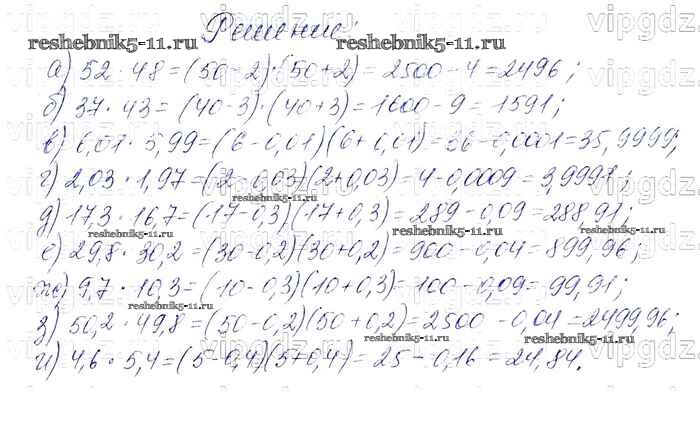 Решение:
а) 52 · 48 = (50-2)·(50+2) = 2500-4 = 2496;
б) 37 · 43 = (40-3)·(40+3) = 1600-9 = 1591;
в) 6,01 · 5,99 = (6-0,01)(6+0,01) = 36-0,0001 = 35,9999;
г) 2,03 · 1,97 = (2-0,03)(2+0,03) = 4-0,0009 = 3,9991;
д) 17,3 · 16,7 = (17-0,3)(17+0,3) = 289-0,09 = 288,91;
е) 29,8 · 30,2 = (30-0,2)(30+0,2) = 900-0,04 = 899,96;
ж) 9,7 · 10,3 = (10-0,3)(10+0,3) = 100-0,09 = 99,91;
з) 50,2 · 49,8 = (50-0,2)(50+0,2) = 2500-0,04 = 2499,96;
и) 4,6 · 5,4 = (5-0,4)(5+0,4) = 25-0,16 = 24,84.
reshebnik5-11.ru
reshebnik5-11.ru
reshebnik5-11.ru
reshebnik5-11.ru
reshebnik5-11.ru
reshebnik5-11.ru
reshebnik5-11.ru
vipgdz